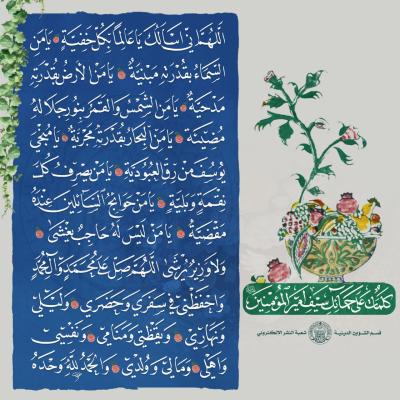 اللهم إني أسألك يا عالما بكل خفية يا من
السماء بقدرته مبنية يا من الأرض بقدرته
مدحية يا من الشمس والقمر بنور جلاله
مضيئة يا من البحار بقدرته مجرية يا منجي
يوسف من رق العبودية يا من يصرف كل
نقمة وبلية يا من حوائج السائلين عنده
مقضية يا من ليس له حاجب يغشى
ولا وزير يرشى اللهم صل على محمد وآل محمد
واحفظني في سفري وحضري وليلي
ونهاري ويقظتي ومنامي ونفسي
وأهلي ومالي وولدي والحمد لله وحده
كلمات على حمائل سيف أمير المؤمنين
قسم الشؤون الدينية شعبة النشر الالكتروني